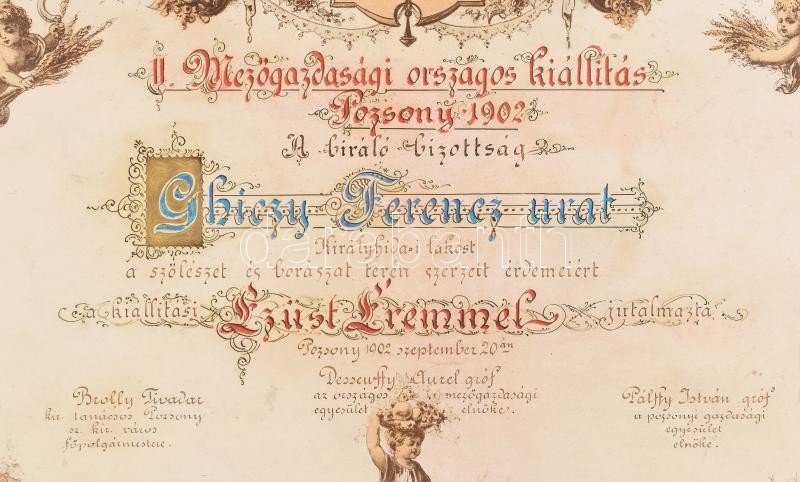 II. Mezőgazdasági országos kiállitás
Pozsony 1902
A biráló bizottság
Ghiczy Ferencz urat
Királyhida-i lakost
a szőlészet és borászat terén szerzett érdemeiért
a kiállitási Ezüst Éremmel jutalmazta.
Pozsony 1902 szeptember 20án
Brolly Tivadar
kir. tanácsos Pozsony
sz. kir. város
főpolgármestere.
Dessewffy Aurel gróf
az országos mezőgazdasági
egyesület elnöke.
Pálffy István gróf
a pozsonyi gazdasági
egyesület
elnöke.
darabanth